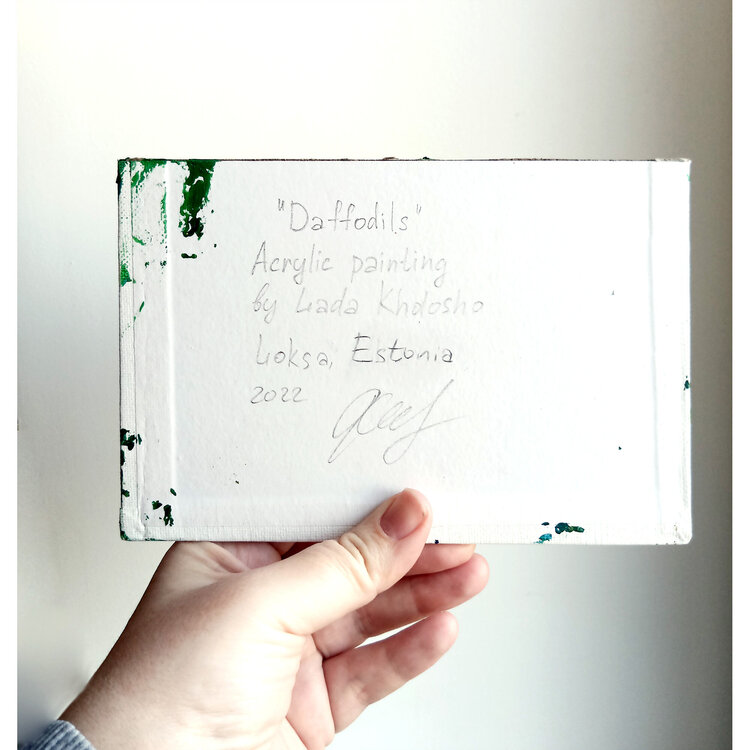 "Daffodils"
Acrylic painting
by Lada Khdosho
Loksa, Estonia
2022